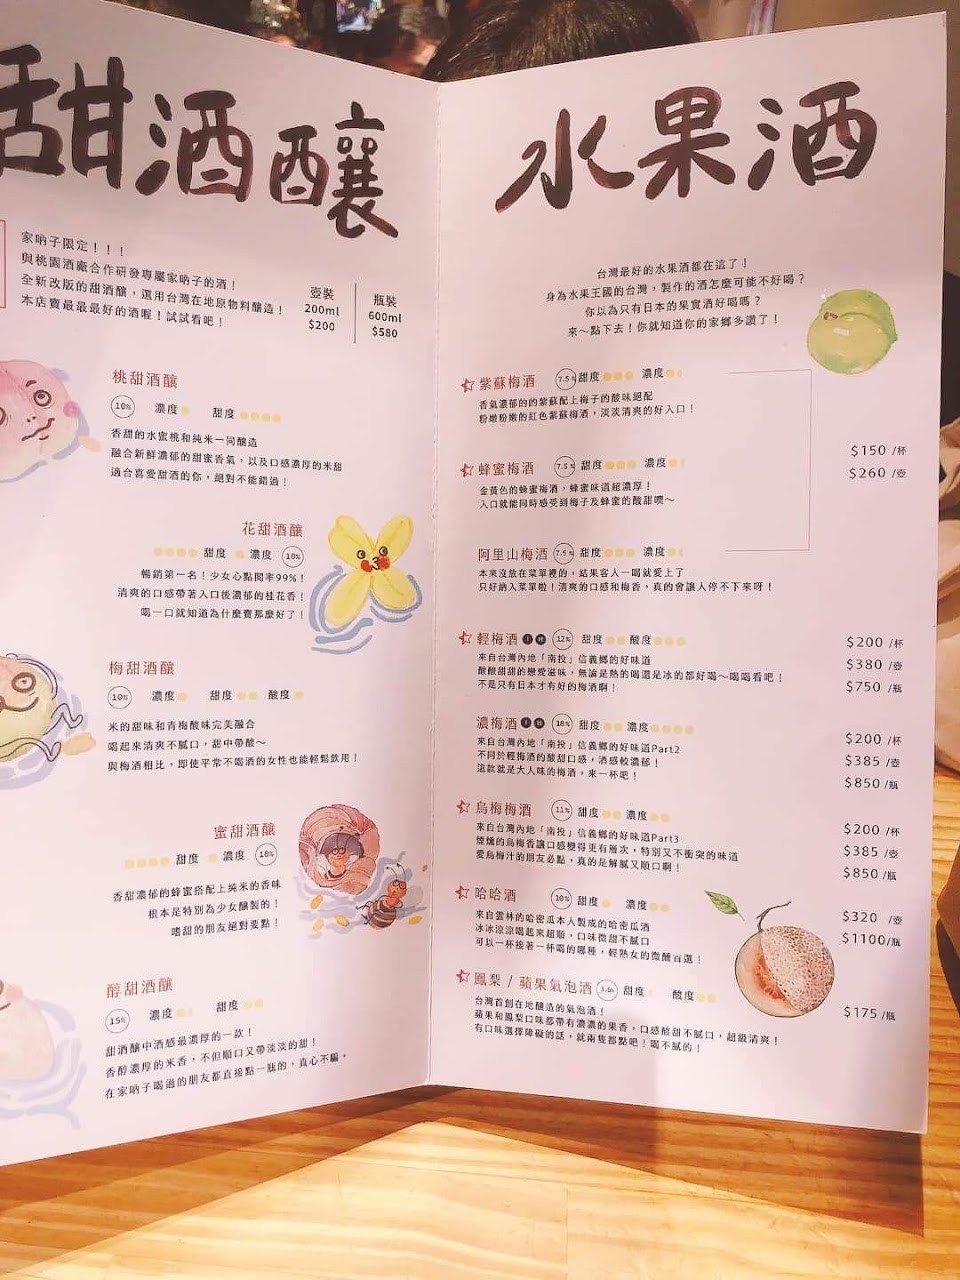 甜酒釀
家吶子限定！！！
與桃園酒廠合作研發專屬家吶子的酒！
全新改版的甜酒釀，選用台灣在地原物料釀造！
本店賣最最最好的酒喔！試試看吧！
壺裝
200ml
$200
瓶裝
600ml
$580
桃甜酒釀
10% 濃度 甜度
香甜的水蜜桃和純米一同釀造
融合新鮮濃郁的甜蜜香氣，以及口感濃厚的米甜
適合喜愛甜酒的你，絕對不能錯過！
花甜酒釀
甜度 濃度 10%
暢銷第一名！少女心點閱率99%！
清爽的口感帶著入口後濃郁的桂花香！
喝一口就知道為什麼賣那麼好了！
梅甜酒釀
10% 濃度 甜度 酸度
米的甜味和青梅酸味完美融合
喝起來清爽不膩口，甜中帶酸～
與梅酒相比，即使平常不喝酒的女性也能輕鬆飲用！
蜜甜酒釀
甜度 濃度 10%
香甜濃郁的蜂蜜搭配上純米的香味
根本是特別為少女釀製的！
嗜甜的朋友絕對要點！
醇甜酒釀
15% 濃度 甜度
甜酒釀中酒感最濃厚的一款！
香醇濃厚的米香，不但順口又帶淡淡的甜！
在家吶子喝過的朋友都直接點一瓶的，真心不騙。
水果酒
台灣最好的水果酒都在這了！
身為水果王國的台灣，製作的酒怎麼可能不好喝？
你以為只有日本的果實酒好喝嗎？
來～點下去！你就知道你的家鄉多讚了！
紫蘇梅酒 7.5% 甜度 濃度
香氣濃郁的的紫蘇配上梅子的酸味絕配
粉嫩粉嫩的紅色紫蘇梅酒，淡淡清爽的好入口！
$150 /杯
$260 /壺
蜂蜜梅酒 7.5% 甜度 濃度
金黃色的蜂蜜梅酒，蜂蜜味道超濃厚！
入口就能同時感受到梅子及蜂蜜的酸甜噢～
阿里山梅酒 7.5% 甜度 濃度
本來沒放在菜單裡的，結果客人一喝就愛上了
只好納入菜單啦！清爽的口感和梅香，真的會讓人停不下來呀！
輕梅酒 12% 甜度 酸度
來自台灣內地「南投」信義鄉的好味道
酸酸甜甜的戀愛滋味，無論是熱的喝還是冰的都好喝～喝喝看吧！
不是只有日本才有好的梅酒啊！
$200 /杯
$380 /壺
$750 /瓶
濃梅酒 18% 甜度 濃度
來自台灣內地「南投」信義鄉的好味道Part2
不同於輕梅酒的酸甜口感，酒感較濃郁！
這款就是大人味的梅酒，來一杯吧！
$200 /杯
$385 /壺
$850 /瓶
烏梅梅酒 11% 甜度 濃度
來自台灣內地「南投」信義鄉的好味道Part3
煙燻的烏梅香讓口感變得更有層次，特別又不衝突的味道
愛烏梅汁的朋友必點，真的是解膩又順口啊！
$200 /杯
$385 /壺
$850 /瓶
哈哈酒 10% 甜度 濃度
來自雲林的哈密瓜本人製成的哈密瓜酒
冰冰涼涼喝起來超順，口味微甜不膩口
可以一杯接著一杯喝的哪種，輕熟女的微醺首選！
$320 /壺
$1100/瓶
鳳梨 / 蘋果氣泡酒 3.5% 甜度 酸度
台灣首創在地釀造的氣泡酒！
蘋果和鳳梨口味都帶有濃濃的果香，口感酸甜不膩口，超級清爽！
有口味選擇障礙的話，就兩隻都點吧！喝不膩的！
$175 /瓶